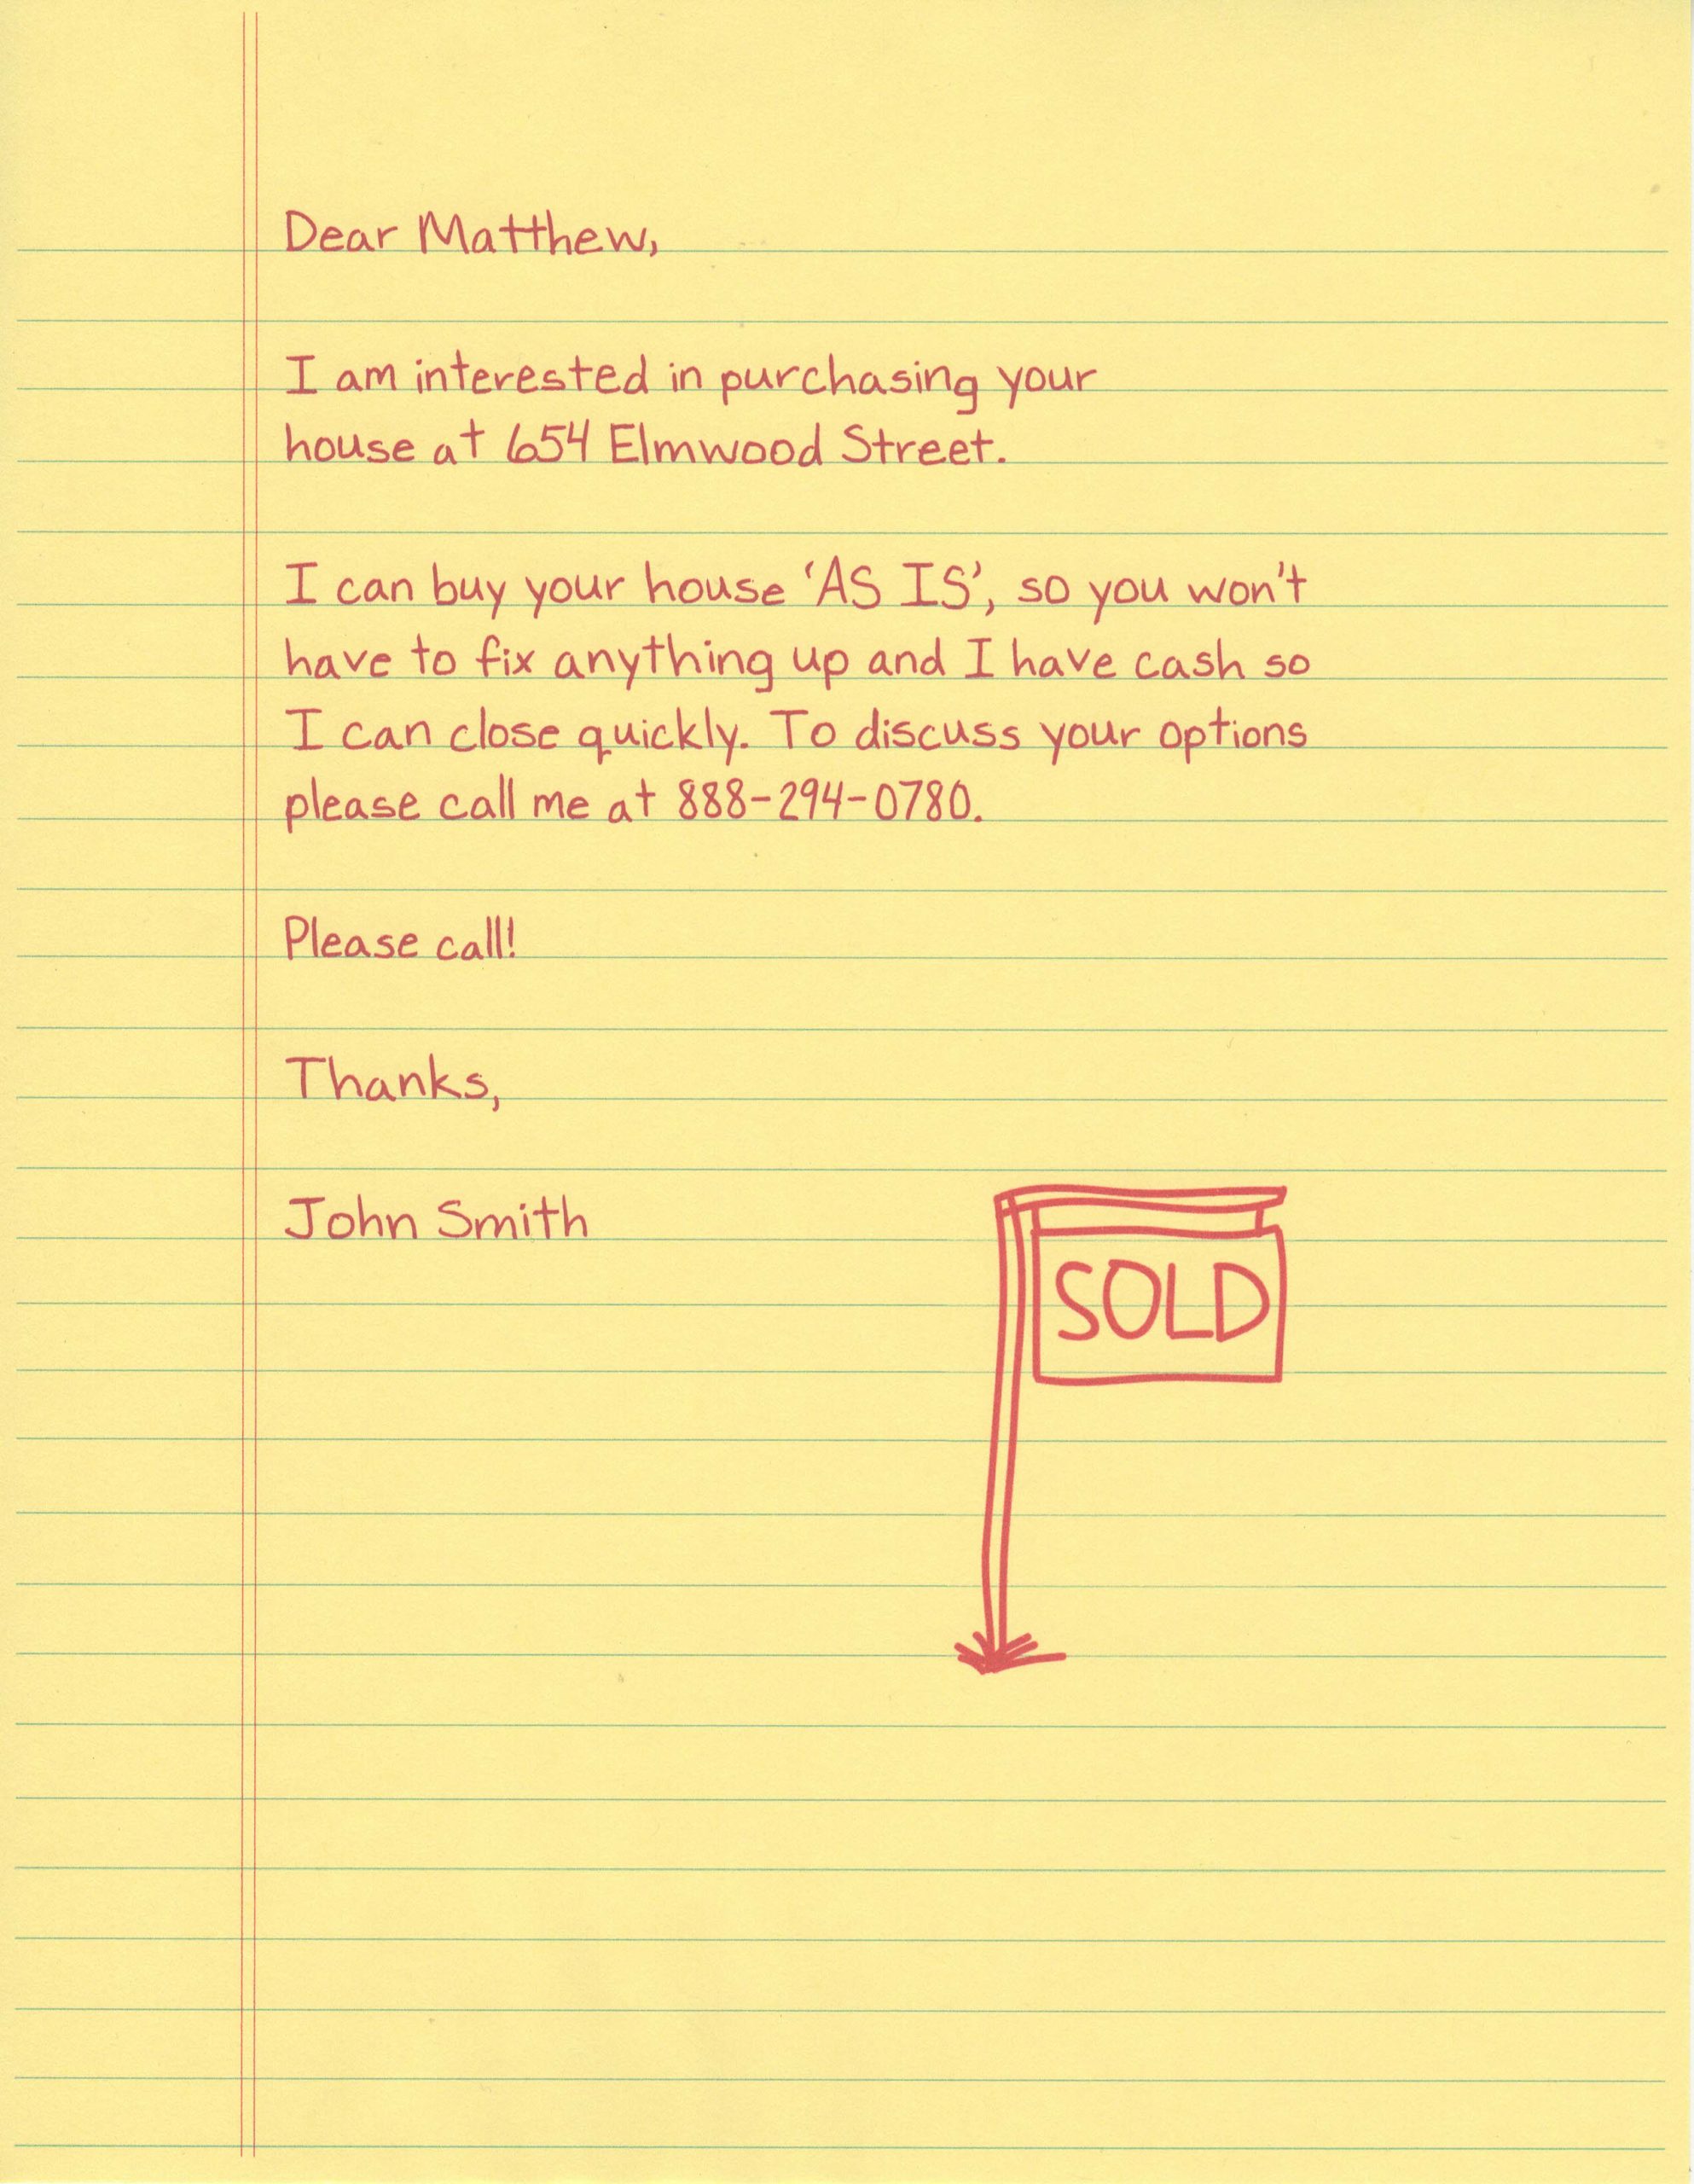 Dear Matthew,
I am interested in purchasing your
house at 654 Elmwood Street.
I can buy your house 'AS IS', so you won't
have to fix anything up and I have cash so
I can close quickly. To discuss your options
please call me at 888-294-0780.
Please call!
Thanks,
John Smith
SOLD